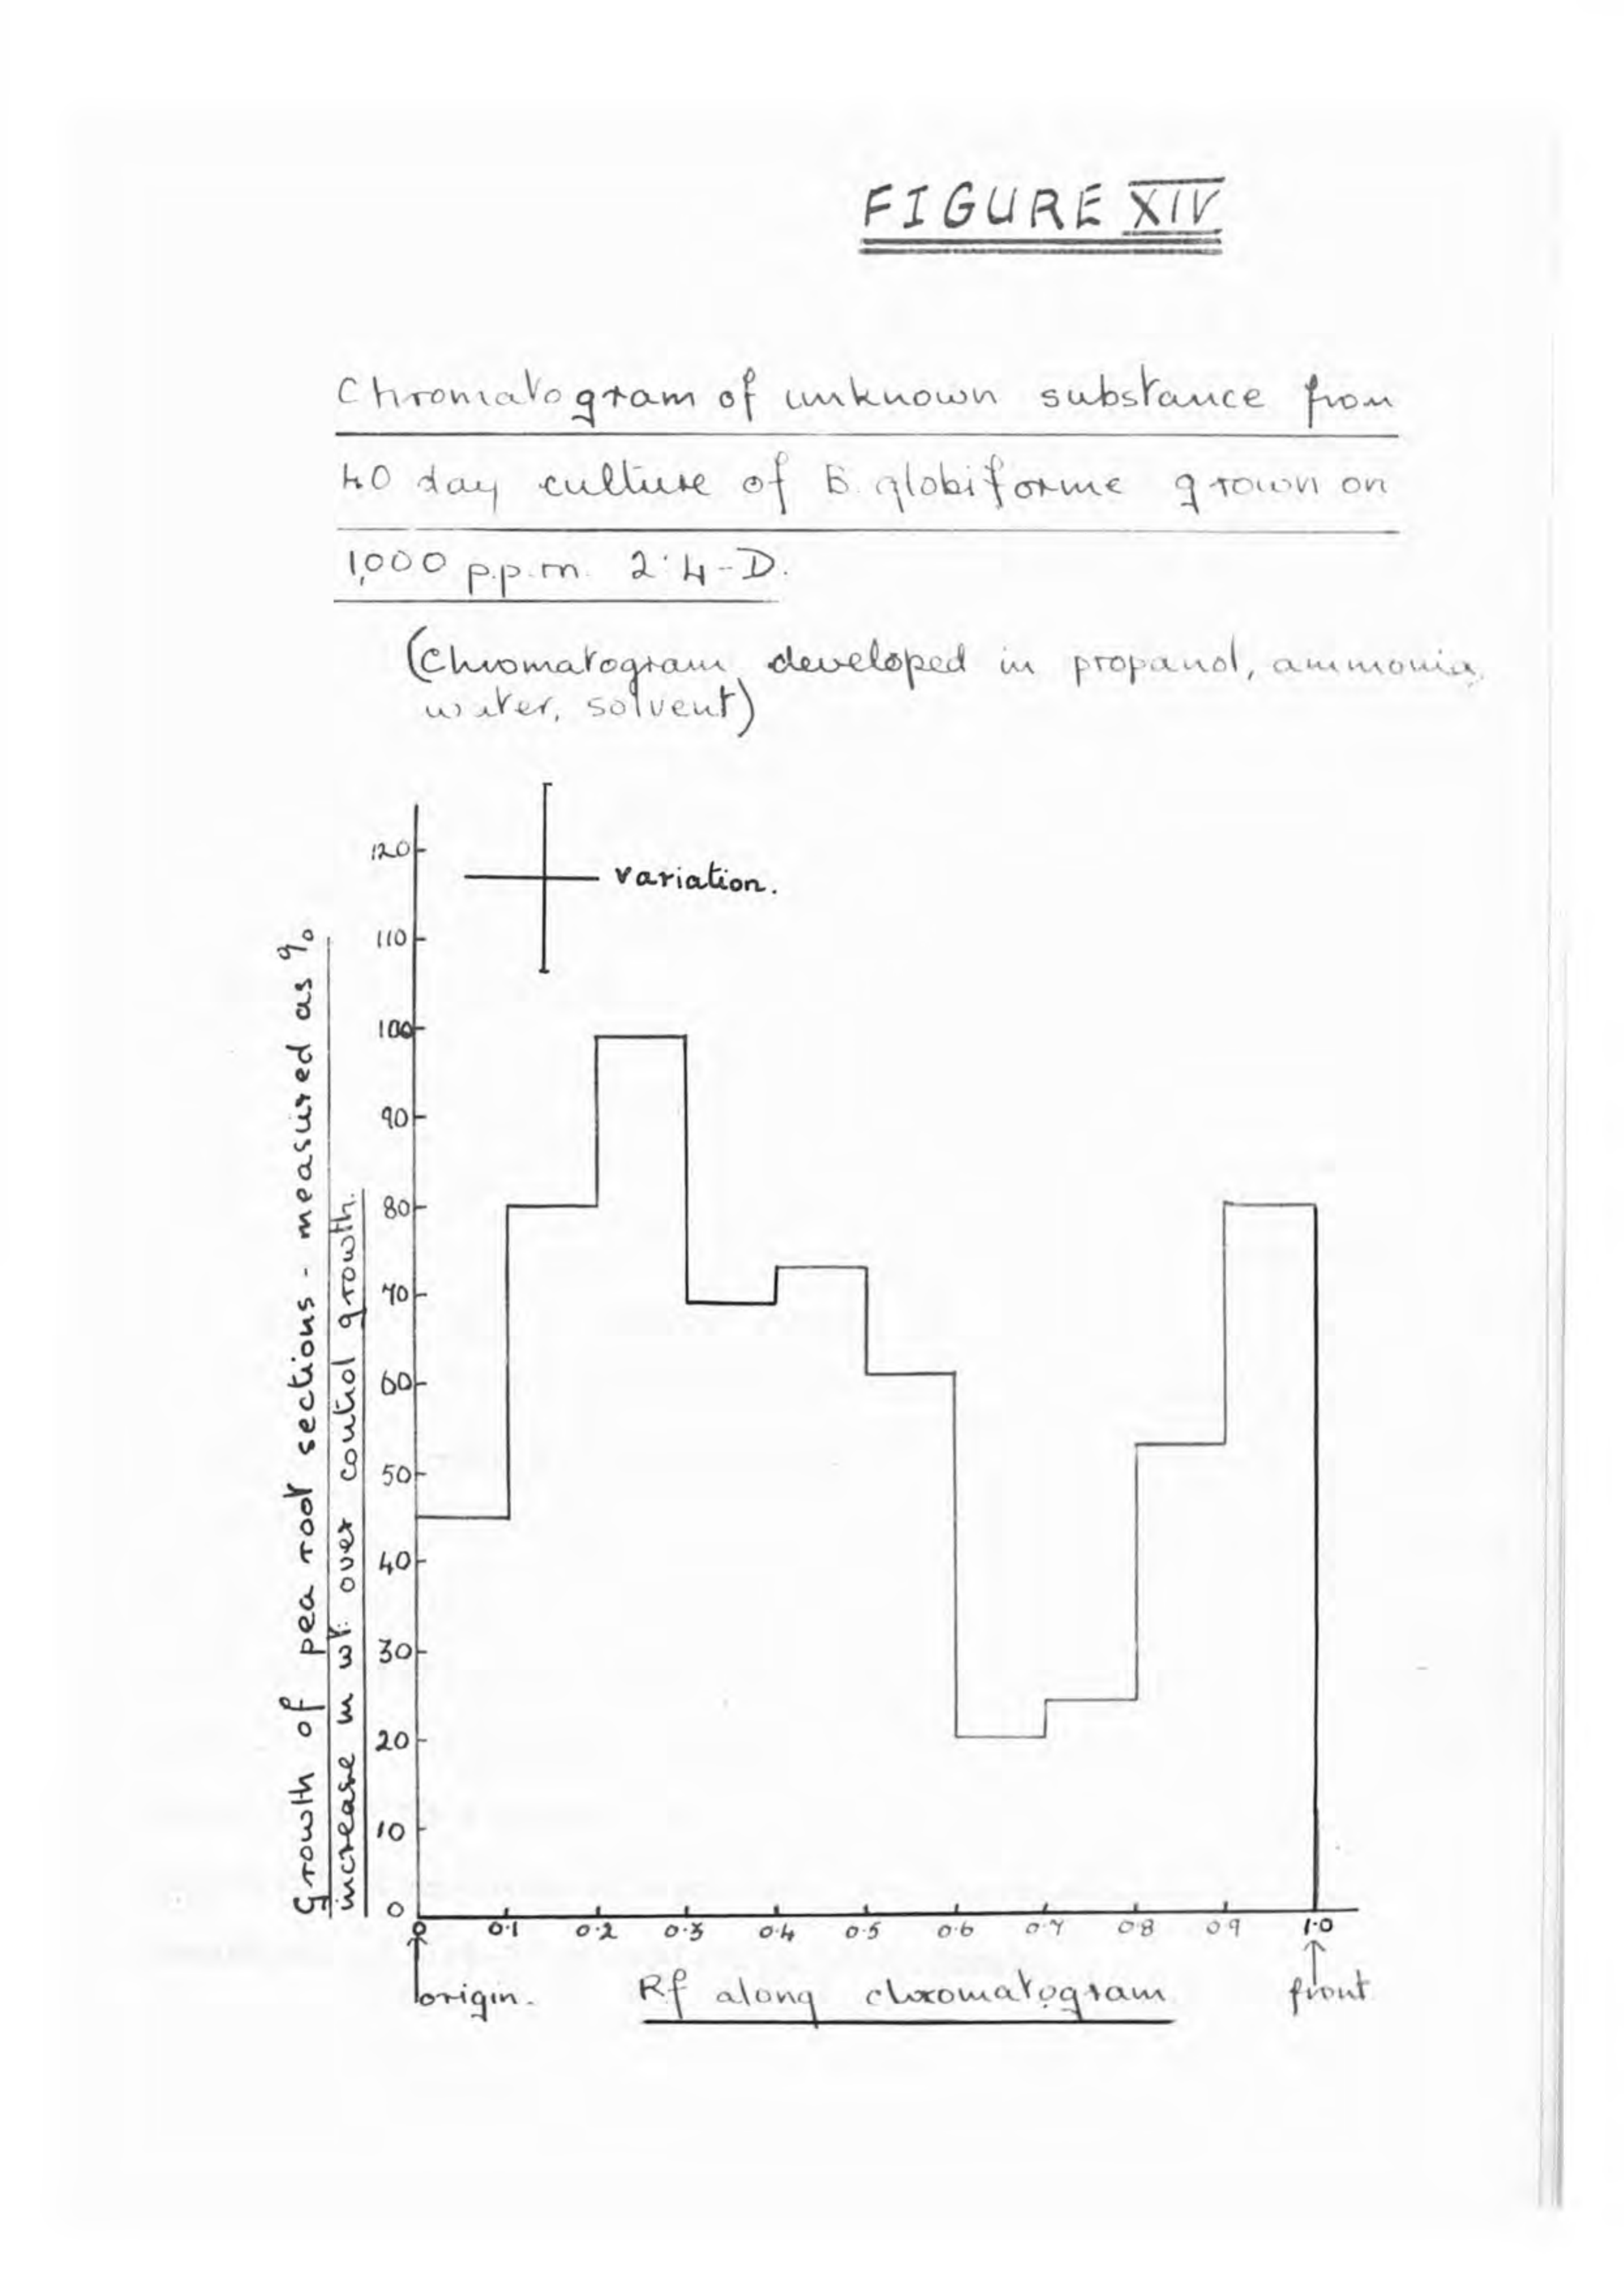 FIGURE XIV
Chromatogram of unknown substance from
40 day culture of B. globiforme grown on
1,000 p.p.m. 2:4-D.
(Chromatogram developed in propanol, ammonia,
water, solvent)
variation.
120
110
100
90
80
70
60
50
40
30
20
10
0
Growth of pea root sections - measured as %
increase in wt: over control growth.
0 0·1 0·2 0·3 0·4 0·5 0·6 0·7 0·8 0·9 1·0
origin. Rf along chromatogram front